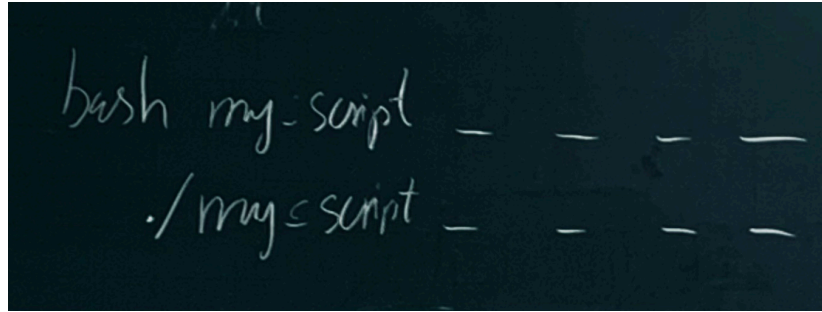 bash my-script _ _ _ _
./my-script _ _ _ _